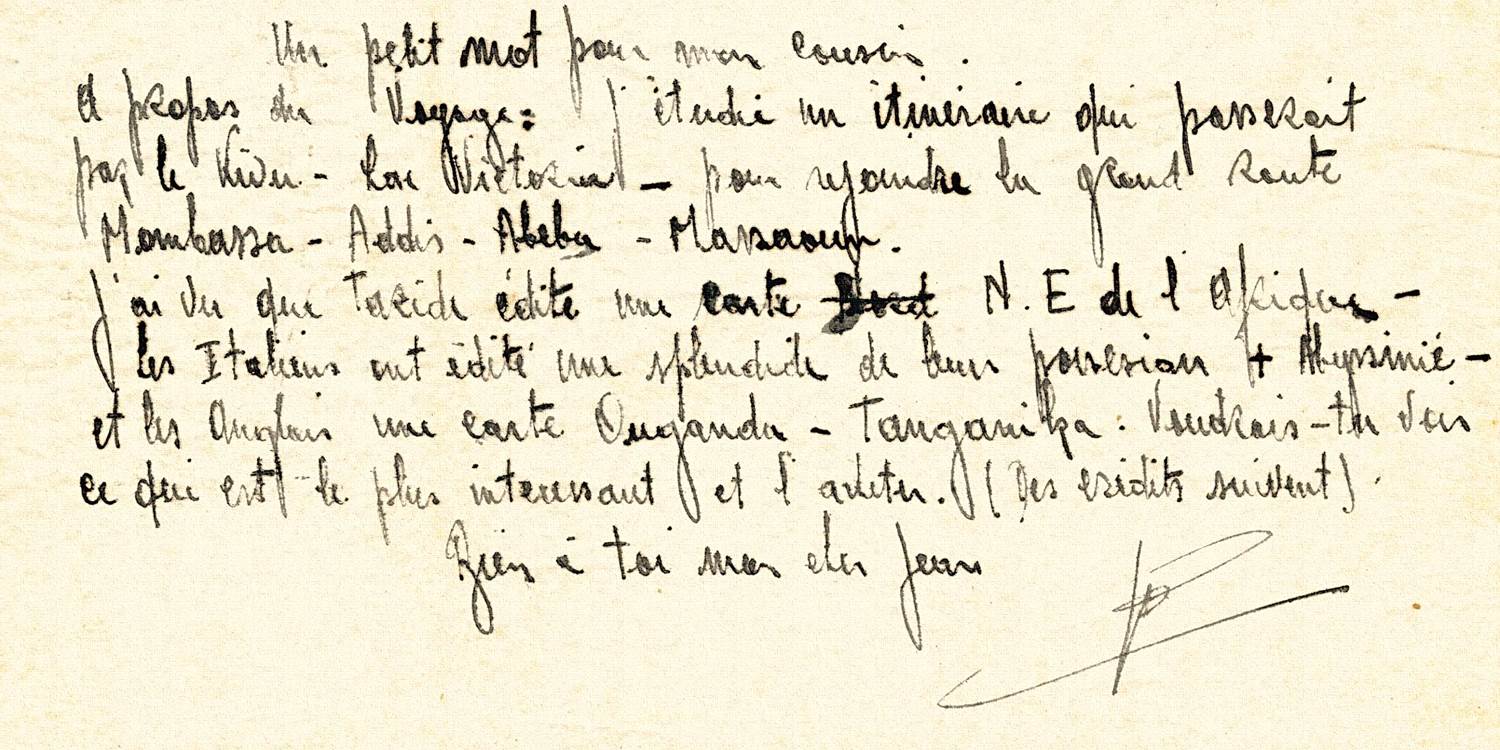 Un petit mot pour mon cousin.
A propos du Voyage: j'étudie un itineraire qui passerait
par le Kivu - Lac Victoria - pour rejoindre la grand route
Mombassa - Addis - Abeba - Massaoua.
J'ai vu que Taride édite une carte N.E de l'Afrique -
les Italiens ont édité une splendide de leurs possesion + Abyssinie -
et les Anglais une carte Ouganda - Tanganika. Voudrais-tu voir
ce qui est le plus interessant et l'acheter. (Des crédits suivent).
Bien à toi mon cher Jean